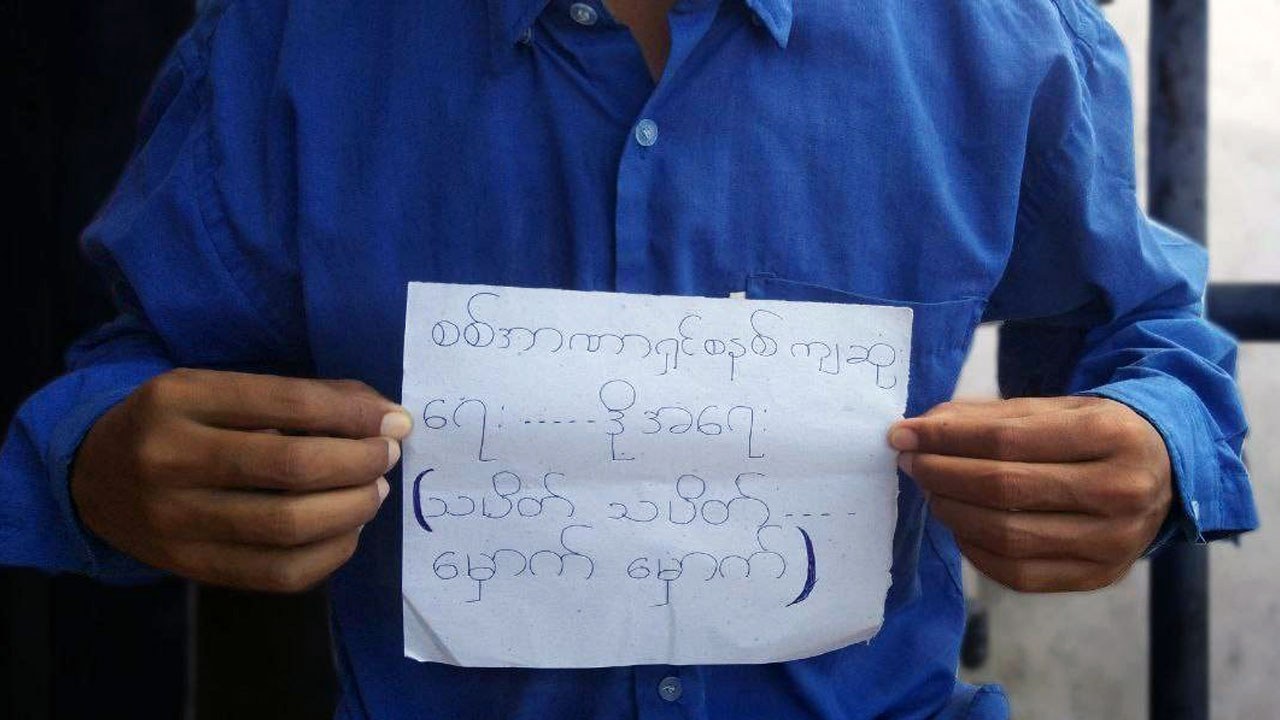 စစ်အာဏာရှင်စနစ် ကျဆုံး
ရေး ----- ဒို့အရေး
(သပိတ် သပိတ် ----
မှောက် မှောက်)